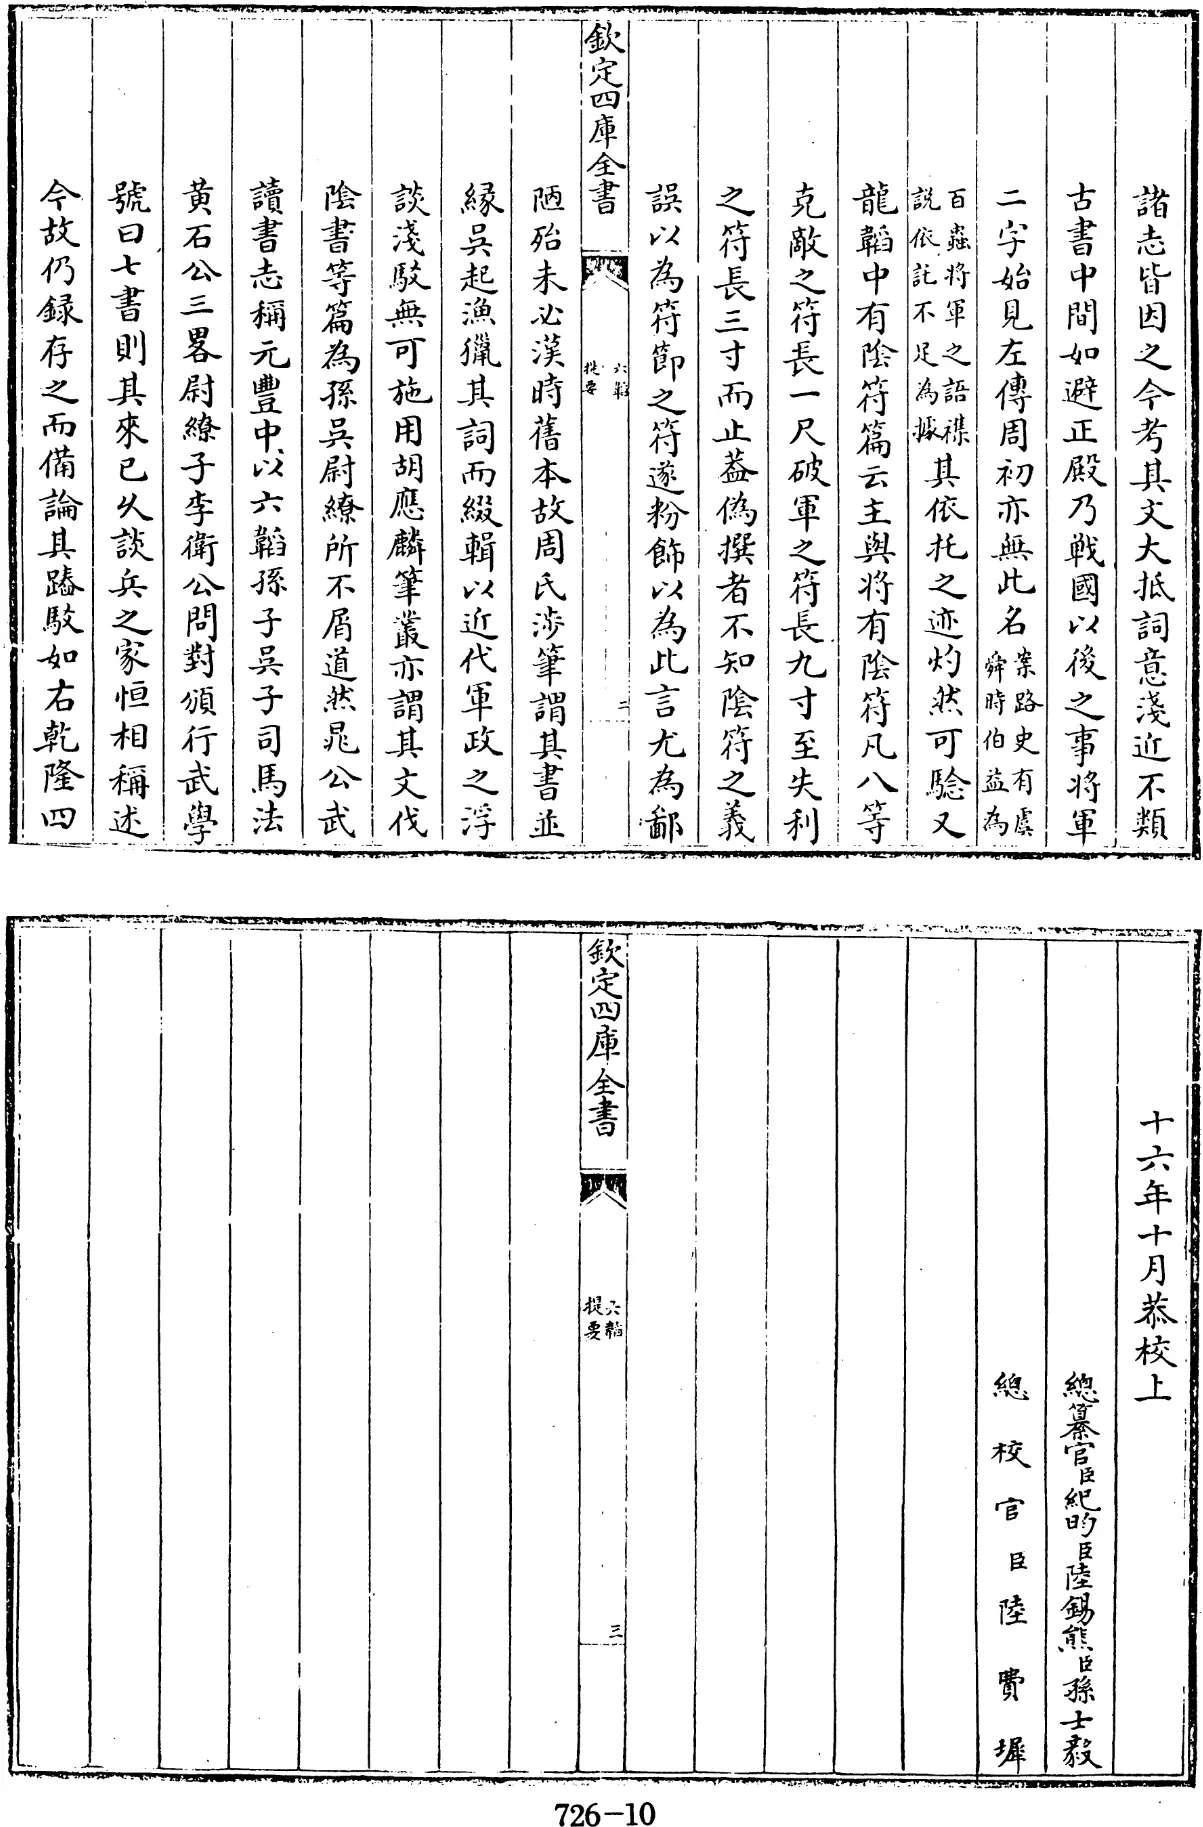 諸志皆因之今考其文大抵詞意淺近不類
古書中間如避正殿乃戰國以後之事將軍
二字始見左傳周初亦無此名案路史有虞舜時伯益為
百蟲將軍之語襍說依託不足為據其依托之迹灼然可驗又
龍韜中有陰符篇云主與將有陰符凡八等
克敵之符長一尺破軍之符長九寸至失利
之符長三寸而止葢偽撰者不知陰符之義
誤以為符節之符遂粉飾以為此言尤為鄙
欽定四庫全書
六韜
提要
二
陋殆未必漢時舊本故周氏涉筆謂其書並
緣吳起漁獵其詞而綴輯以近代軍政之浮
談淺駮無可施用胡應麟筆叢亦謂其文伐
陰書等篇為孫吳尉繚所不屑道然晁公武
讀書志稱元豐中以六韜孫子吳子司馬法
黃石公三畧尉繚子李衛公問對頒行武學
號曰七書則其來已久談兵之家恒相稱述
今故仍録存之而備論其踳駮如右乾隆四
十六年十月恭校上
總纂官臣紀昀臣陸錫熊臣孫士毅
總校官臣陸費墀
欽定四庫全書
六韜
提要
三
726-10